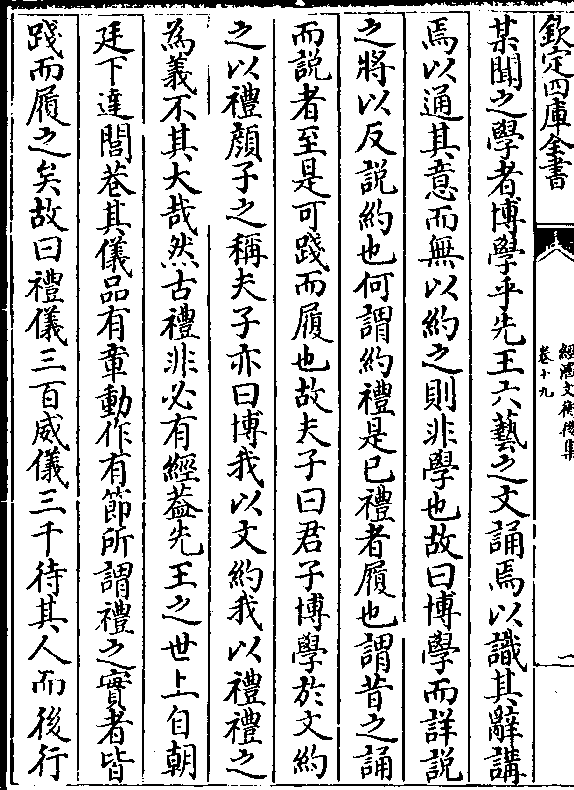 欽定四庫全書
經濟文衡後集
卷十九
一
某聞之學者博學乎先王六藝之文誦焉以識其辭講
焉以通其意而無以約之則非學也故曰博學而詳說
之將以反說約也何謂約禮是已禮者履也謂昔之誦
而說者至是可踐而履也故夫子曰君子博學於文約
之以禮顔子之稱夫子亦曰博我以文約我以禮禮之
為義不其大哉然古禮非必有經葢先王之世上自朝
廷下達閭巷其儀品有章動作有節所謂禮之實者皆
踐而履之矣故曰禮儀三百威儀三千待其人而後行